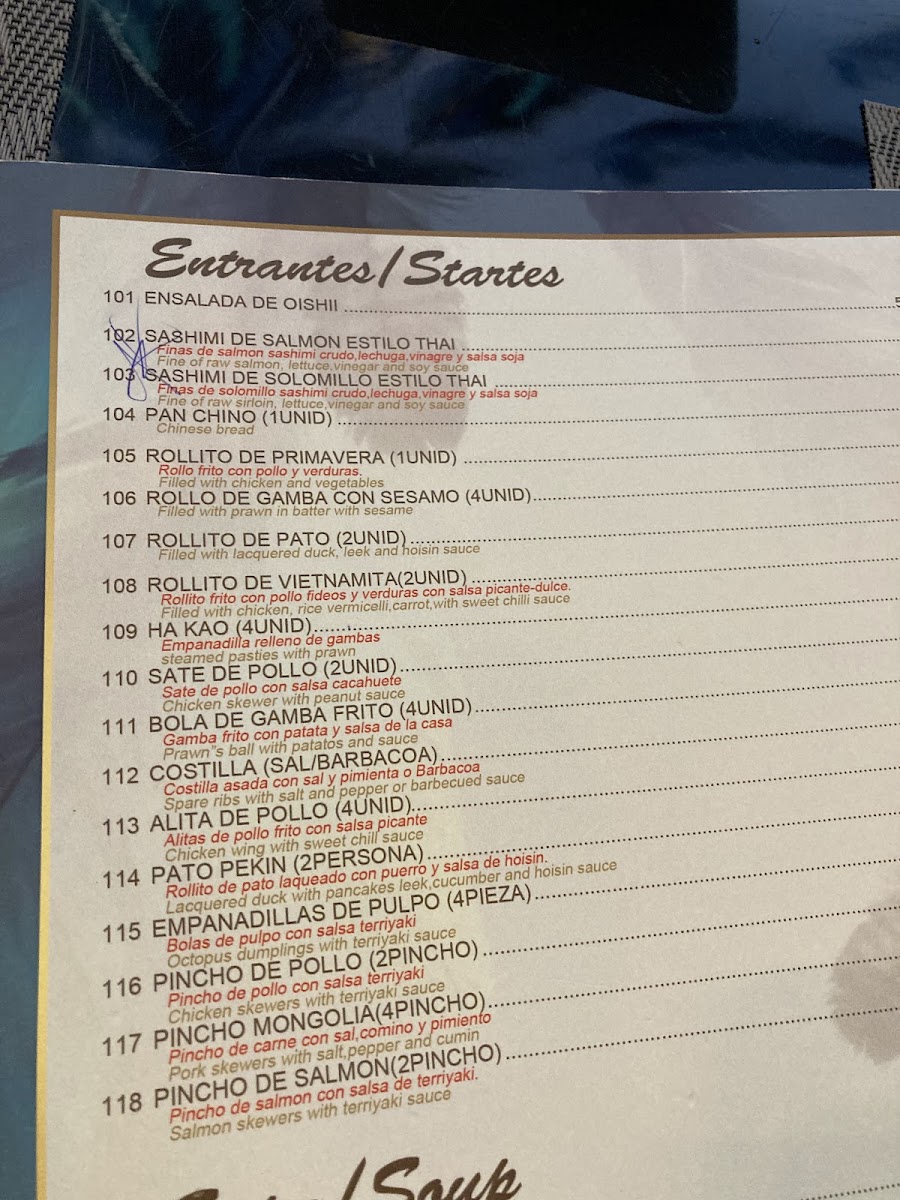 Entrantes/Startes
101 ENSALADA DE OISHII ........ 5
102 SASHIMI DE SALMON ESTILO THAI
Finas de salmon sashimi crudo,lechuga,vinagre y salsa soja
Fine of raw salmon, lettuce,vinegar and soy sauce
103 SASHIMI DE SOLOMILLO ESTILO THAI
Finas de solomillo sashimi crudo,lechuga,vinagre y salsa soja
Fine of raw sirloin, lettuce,vinegar and soy sauce
104 PAN CHINO (1UNID)
Chinese bread
105 ROLLITO DE PRIMAVERA (1UNID)
Rollo frito con pollo y verduras.
Filled with chicken and vegetables
106 ROLLO DE GAMBA CON SESAMO (4UNID)
Filled with prawn in batter with sesame
107 ROLLITO DE PATO (2UNID)
Filled with lacquered duck, leek and hoisin sauce
108 ROLLITO DE VIETNAMITA(2UNID)
Rollito frito con pollo fideos y verduras con salsa picante-dulce.
Filled with chicken, rice vermicelli,carrot,with sweet chilli sauce
109 HA KAO (4UNID)
Empanadilla relleno de gambas
steamed pasties with prawn
110 SATE DE POLLO (2UNID)
Sate de pollo con salsa cacahuete
Chicken skewer with peanut sauce
111 BOLA DE GAMBA FRITO (4UNID)
Gamba frito con patata y salsa de la casa
Prawn"s ball with patatos and sauce
112 COSTILLA (SAL/BARBACOA)
Costilla asada con sal y pimienta o Barbacoa
Spare ribs with salt and pepper or barbecued sauce
113 ALITA DE POLLO (4UNID)
Alitas de pollo frito con salsa picante
Chicken wing with sweet chill sauce
114 PATO PEKIN (2PERSONA)
Rollito de pato laqueado con puerro y salsa de hoisin.
Lacquered duck with pancakes leek,cucumber and hoisin sauce
115 EMPANADILLAS DE PULPO (4PIEZA)
Bolas de pulpo con salsa terriyaki
Octopus dumplings with terriyaki sauce
116 PINCHO DE POLLO (2PINCHO)
Pincho de pollo con salsa terriyaki
Chicken skewers with terriyaki sauce
117 PINCHO MONGOLIA(4PINCHO)
Pincho de carne con sal,comino y pimiento
Pork skewers with salt,pepper and cumin
118 PINCHO DE SALMON(2PINCHO)
Pincho de salmon con salsa de terriyaki.
Salmon skewers with terriyaki sauce
/Soup